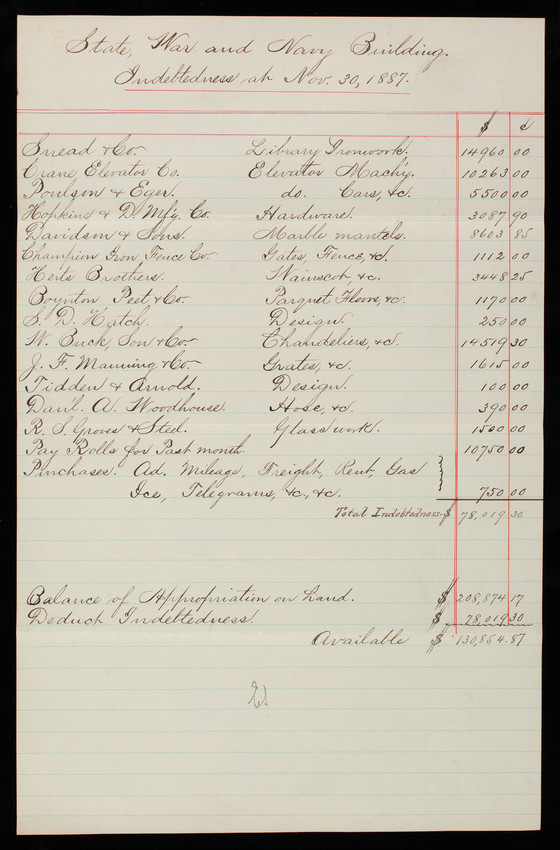 State, War and Navy Building.
Indebtedness at Nov. 30, 1887.
$ ¢
Snead & Co. Library Ironwork. 14960 00
Crane Elevator Co. Elevator Mach'y. 10263 00
Poulson & Eger. do. Cars, &c. 5500 00
Hopkins & D. Mfg. Co. Hardware. 3087 90
Davidson & Sons. Marble mantels. 8603 85
Champion Iron Fence Co. Gates, Fence, &c. 1112 00
Herts Brothers. Wainscot &c. 3448 25
Boynton Peet & Co. Parquet Floors, &c. 1170 00
S. D. Hatch. Design. 250 00
W. Buck, Son & Co. Chandeliers, &c. 14519 30
J. F. Manning & Co. Grates, &c. 1615 00
Tidden & Arnold. Design. 100 00
Danl. A. Woodhouse. Hose, &c. 390 00
R. S. Groves & Steil. Glasswork. 1500 00
Pay Rolls for Past month 10750 00
Purchases. Ad. Mileage, Freight, Rent, Gas
Ice, Telegrams, &c., &c. 750 00
Total Indebtedness $ 78,019 30
Balance of Appropriation on hand. $ 208,874 17
Deduct Indebtedness. $ 78,019 30
Available $ 130,854.87